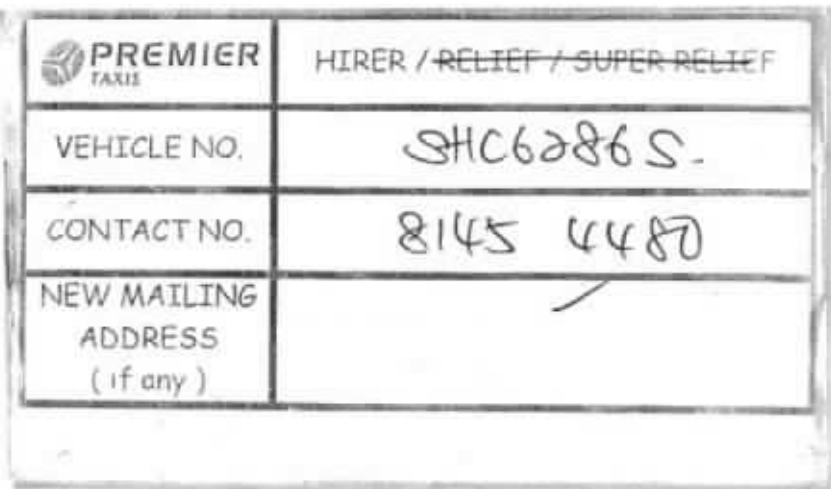 PREMIER TAXIS
HIRER / RELIEF / SUPER RELIEF
VEHICLE NO.
SHC6286S.
CONTACT NO.
8145 4480
NEW MAILING
ADDRESS
(if any)